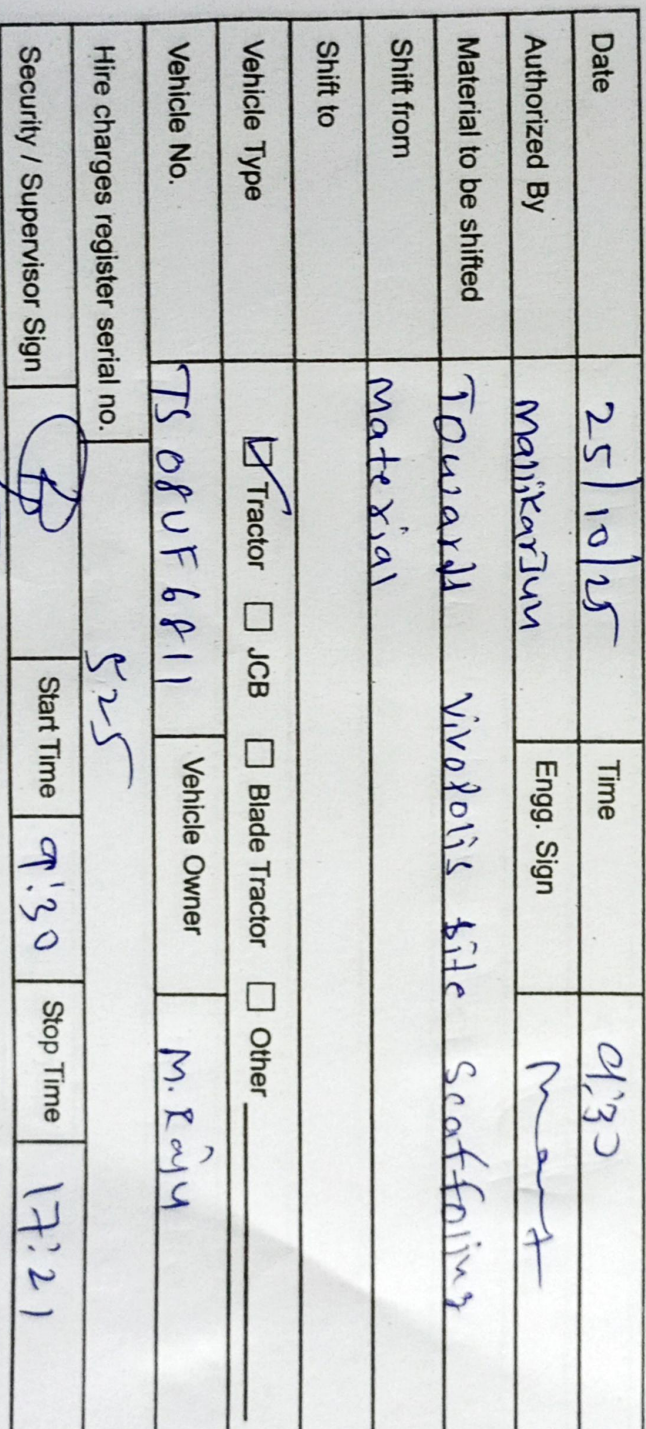 Date 25/10/25 Time 9:30
Authorized By Mallikarjun Engg. Sign
Material to be shifted Towards Vivopolis site Scaffoling
Shift from Material
Shift to
Vehicle Type ☑ Tractor ☐ JCB ☐ Blade Tractor ☐ Other
Vehicle No. TS 08UF6811 Vehicle Owner M. Raju
Hire charges register serial no. 525
Security / Supervisor Sign Start Time 9:30 Stop Time 17:21